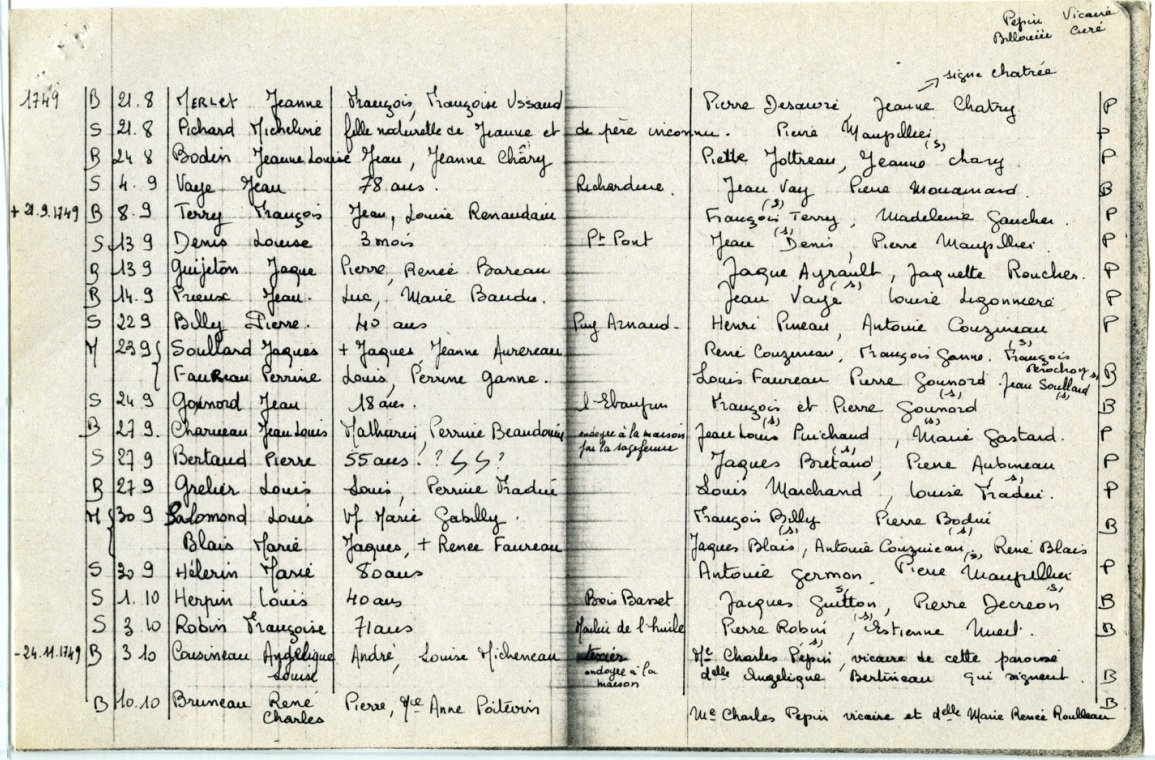 Pepin Vicaire
Curé
signe chatrée
1749 B 21.8 MERLET Jeanne François, Françoise Ussaud Pierre Desauvré Jeanne Chatry P
S 21.8 Pichard Micheline fille naturelle de Jeanne et de père inconnu. Pierre Maupillier P
B 24 8 Bodin Jeanne Louise Jean, Jeanne Chary Jottreau, Jeanne (s) chary P
S 4.9 Vaye Jean 78 ans. Richardine. Jean Vay Pierre B
+ 21.9.1749 B 8.9 Terry François Jean, Louise Renaudain François (s) Terry, Madeleine Gaucher P
S 13 9 Denis Louise 3 mois Pt Pont Jean (s) Denis, Pierre Maupillier. P
B 13 9 Guijeton Jaque Pierre, Renée Bareau Jaque Ayrault, Jaquette Roucher. P
B 14.9 Prieux Jean. Luc, Marie Baudu. Jean Vayé (s) Louise Ligonniere P
S 22 9 Billy Pierre. 40 ans Puy Arnaud - Henri Pineau, Antoine Couzineau P
M 23 9 { Soullard Jaques + Jaques, Jeanne Aurereau René Couzineau, François Ganne. François (s) Perochon
Faureau Perrine Louis, Perrine Ganne. Louis Faureau Pierre Gounord Jean Soullard (s) B
S 24 9 Gounord Jean 18 ans. l'Ebaupin François et Pierre (s) Gounord B
B 27 9. Charueau Jean Louis Mathurin, Perrine Beaudouin endoyé à la maison par la sagefemme Jean Louis (s) Puichaud, Marie (s) Gastard. P
S 27 9 Bertaud Pierre 55 ans ! ? 55 ? Jaques Bretaud (s), Pierre Aubineau P
B 27 9 Grelier Louis Louis, Perrine Fradin Louis Marchand, Louise Fradin (s). P
M { 30 9 Salomond Louis Vf Marie Gabilly. François Billy Pierre Bodin B
Blais Marie Jaques, + Renée Faureau Jaques Blais (s), Antoine Couzineau (s), René Blais
S 30 9 Hélerin Marie 80 ans Antoine Germon. Pierre (s) Maupillier P
S 1.10 Herpin Louis 40 ans Bois Basset Jacques Guitton (s), Pierre Decreon (s) B
S 3.10 Robin Françoise 71 ans Moulin de l'huile Pierre Robin (s), Estienne Nueil. B
- 24.11.1749 B 3.10 Cousineau Angélique Louise André, Louise Micheneau endoyée à la maison Me Charles Pepin (s), vicaire de cette paroisse
delle Angelique Bertineau qui signent. B
B 10.10 Bruneau René Charles Pierre, Me Anne Poitevin Me Charles Pepin vicaire et delle Marie Renée Roulleau B